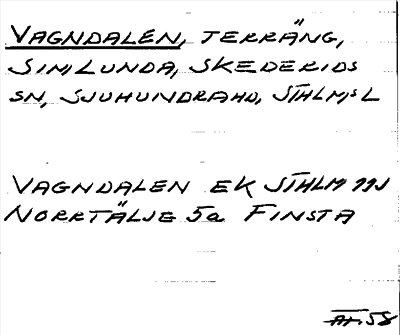 VAGNDALEN, TERRÄNG,
SIMLUNDA, SKEDERIDS
SN, SJUHUNDRA HD, STHLMS L
VAGNDALEN EK STHLM
NORRTÄLJE 5a FINSTA
58